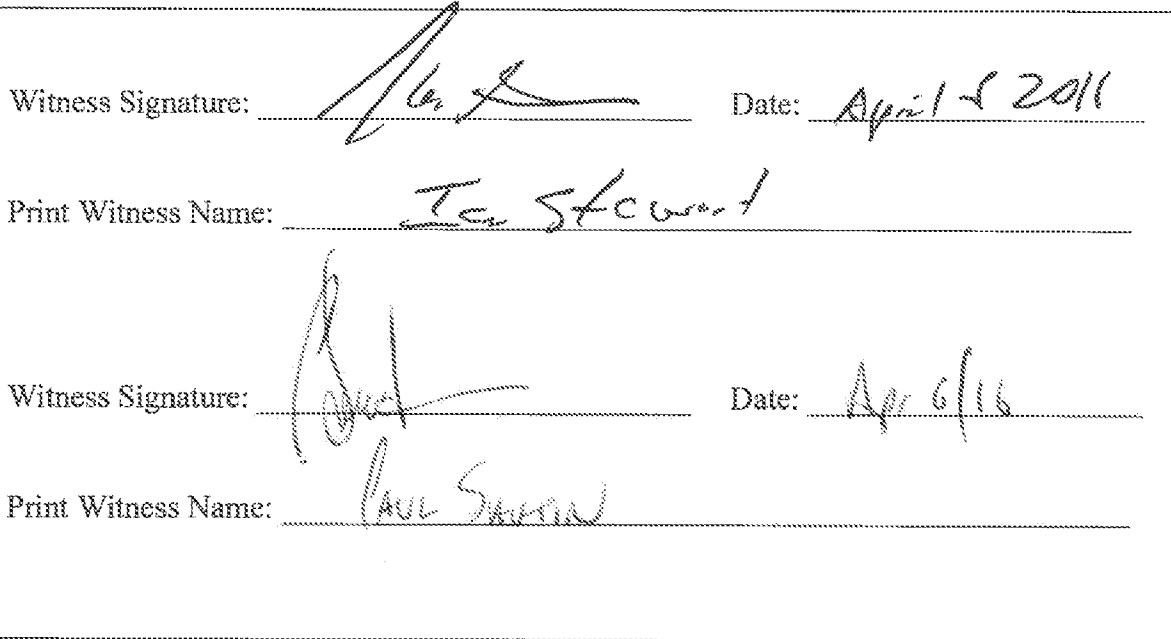 Witness Signature: Date: April 5 2016
Print Witness Name: Ian Stewart
Witness Signature: Date: Apr 6/16
Print Witness Name: PAUL